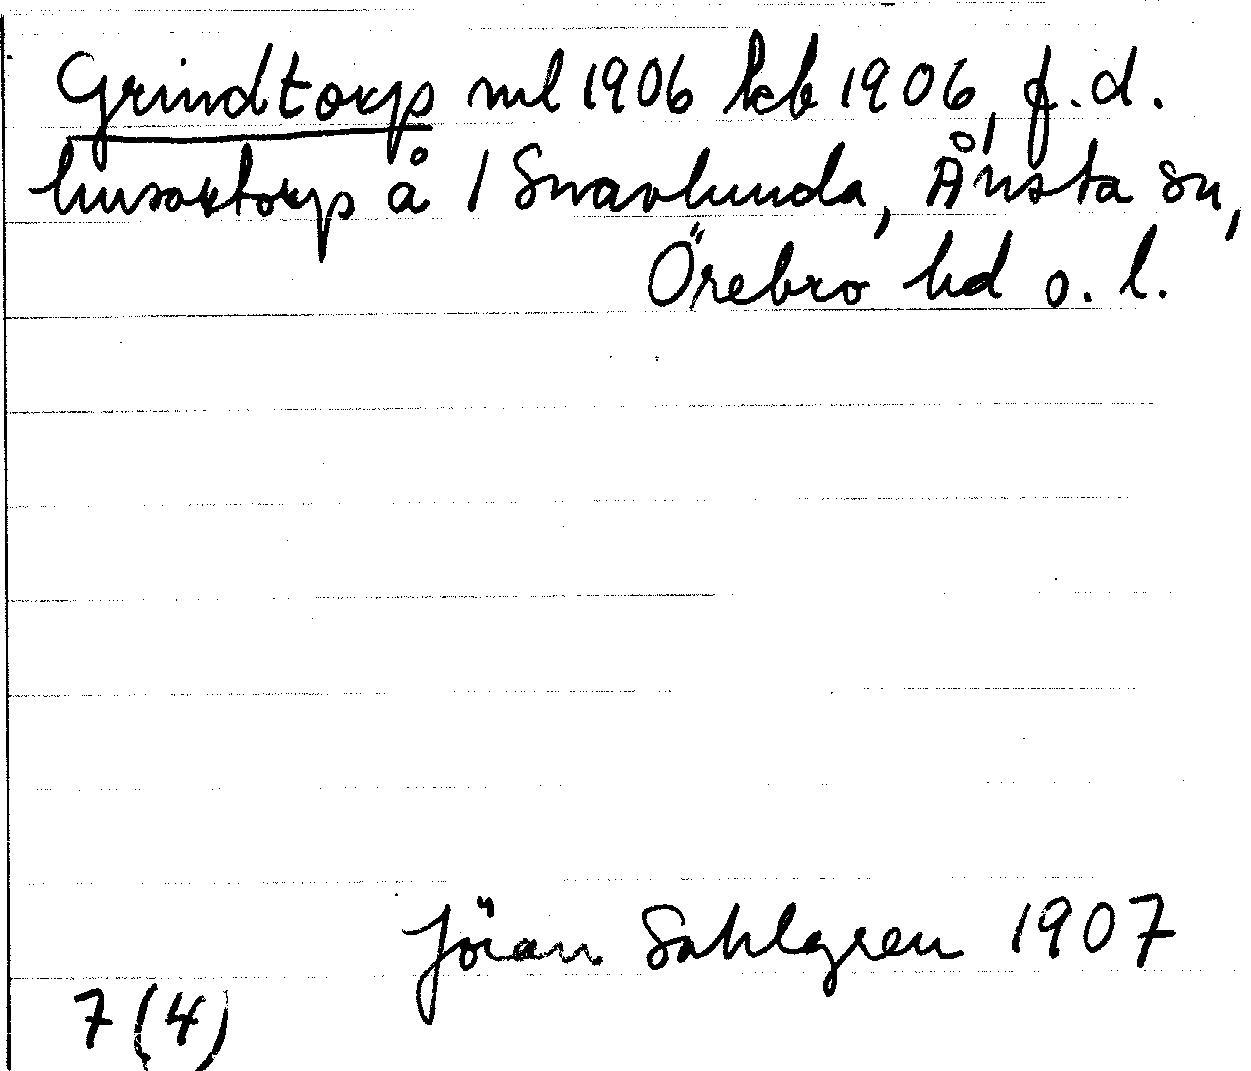 Grindtorp ml 1906 kb 1906, f.d.
husartorp å 1 Snavlunda, Ånsta sn,
Örebro hd o. l.
Jöran Sahlgren 1907
7 (4)